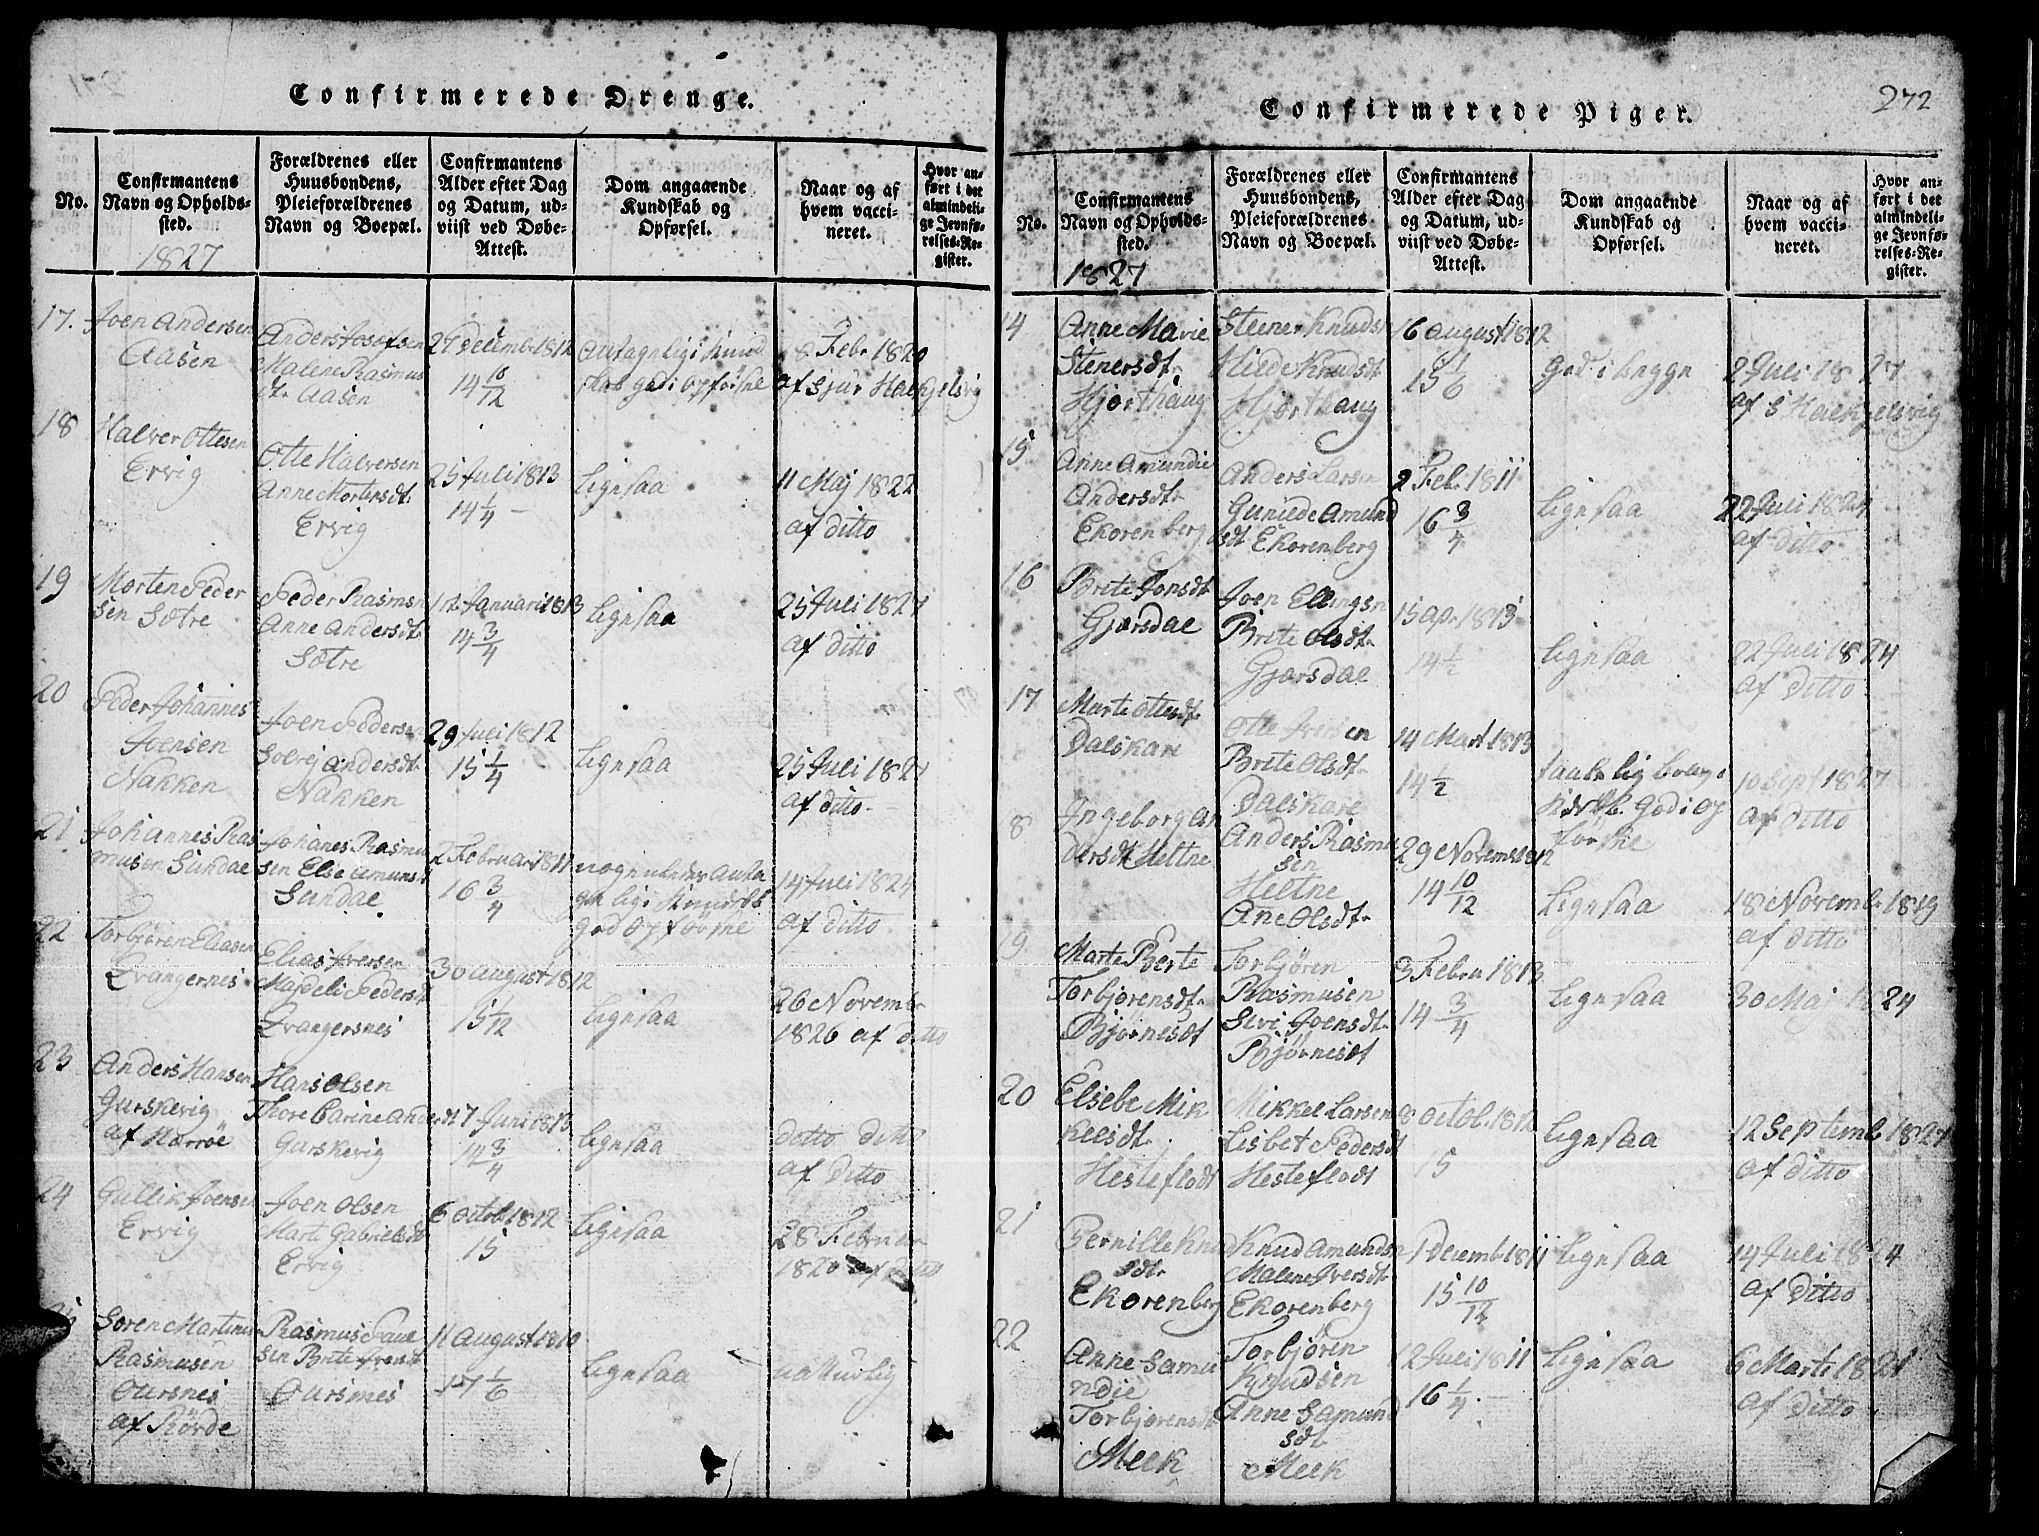 Confirmerede Drenge.
No.
Confirmantens
Navn og Opholds-
sted.
1827
Forældrenes eller
Huusbondens,
Pleieforældrenes
Navn og Boepæl.
Confirmantens
Alder efter Dag
og Datum, ud-
viist ved Døbe-
Attest.
Dom angaaende
Kundskab og
Opførsel.
Naar og af
hvem vacci-
neret.
Hvor an-
ført i det
almindeli-
ge Jevnfø-
relses-Re-
gister.
17.
Joen Andersen
Aasen
Anders Josefsen
Malene Rasmus
dt. Aasen
Decembr 1812
14 10/12
8 Febr 1820
af Sjur Haugelsvig
18
Halver Ottesen
Ervig
Otte Halversen
Anne Mortensdt.
Ervig
25 Juli 1813
14 1/4
Lignsaa
11 Maj 1822
af ditto
19
Morten Peder
sen Sætre
Peder Rasmsn
Anne Andersdt.
Sætre
12 Januari 1813
14 3/4
Lignsaa
25 Juli 1827
af ditto
20
Peder Johannes
Joensen
Nakken
Joen Pedersen
Solvej Andersdt.
Nakken
29 Juli 1812
15 1/4
Lignsaa
25 Juli 1827
af ditto
21
Johannes Ras
musen Sundal
Johanes Rasmu
sen Else Amunsdt
Sundal
2 Februari 1811
16 3/4
god opførsle
14 Juli 1824
af ditto
22
Torbjøren Eliasen
Qvangernes
Elias Iversen
Majdeli Pedersdt
Qvangersnes
30 August 1812
15 1/12
Lignsaa
26 Novembr
1826 af ditto
23
Anders Hansen
Gurskevig
af Hærrøe
Hans Olsen
Thore Carine Andersdt
Gurskevig
17 Juni 1813
14 3/4
Lignsaa
ditto ditto
af Ditto
24
Gullik Joensen
Ervig
Joen Olsen
Marte Gabrielsdt
Ervig
6 Octob 1812
15
Lignsaa
28 Februar
1820 af ditto
Søren Martinus
Rasmusen
Oursnes
af Rørde
Rasmus Paul
sen Brite Iversdt
Oursnes
11 August 1810
17 1/6
Lignsaa
naturlig
272
Confirmerede Piger.
No.
Confirmantens
Navn og Opholds-
sted.
1827
Forældrenes eller
Huusbondens,
Pleieforældrenes
Navn og Boepæl.
Confirmantens
Alder efter Dag
og Datum, ud-
viist ved Døbe-
Attest.
Dom angaaende
Kundskab og
Opførsel.
Naar og af
hvem vacci-
neret.
Hvor an-
ført i det
almindeli-
ge Jevnfø-
relses-Re-
gister.
14
Anne Marie
Stenersdt.
Hjorthaug
Steener Knudsn
Hilde Knudsdt
Hjorthaug
16 August 1812
15 1/6
God i begge
2 Juli 1827
af S Haugelsvig
15
Anne Amundie
Andersdt.
Ekorenberg
Anders Larsen
Gunilde Amund
sdt Ekorenberg
2 Febr 1811
16 3/4
Lignsaa
22 Juli 1824
af ditto
16
Brite Jonsdt
Gjørsdal
Joen Ellingsn
Brite Olsdt.
Gjørsdal
15 apr. 1813
14 1/2
Lignsaa
22 Juli 1824
af Ditto
17
Marte Ottesdt.
Dalskare
Otte Iversen
Brite Olsdt.
Dalskare
14 Mart 1813
14 1/2
God i op
førsle
10 Sept 1827
af ditto
8
Ingeborg An
dersdt Heltne
Anders Rasmu
sen
Heltne
Ane Olsdt.
29 November 12
14 10/12
Lignsaa
18 Novemb. 1819
af ditto
19
Marte Berte
Torbjørensdt.
Bjørnesdt
Torbjøren
Rasmusen
Sevi Joensdt.
Bjørnesdt
3 Febru 1813
14 3/4
Lignsaa
30 Maj 1824
20
Elsebe Mik
kelsdt.
Hesteflodt
Mikkel Larsen
Lisbet Pedersdt
Hesteflodt
8 Octob. 1812
15
Lignsaa
12 Septemb. 1827
af ditto
21
Pernille Knud
sdt.
Ekorenberg
Knud Amundsn
Malene Iversdt.
Ekorenberg
1 Decemb 1811
15 10/12
Lignsaa
14 Juli 1824
af Ditto
22
Anne Samu
ndie
Torbjørensdt
Meek
Torbjøren
Knudsen
Anne Samund
sdt
Meek
12 Juli 1811
16 1/4
Lignsaa
6 Marti 1821
af Ditto